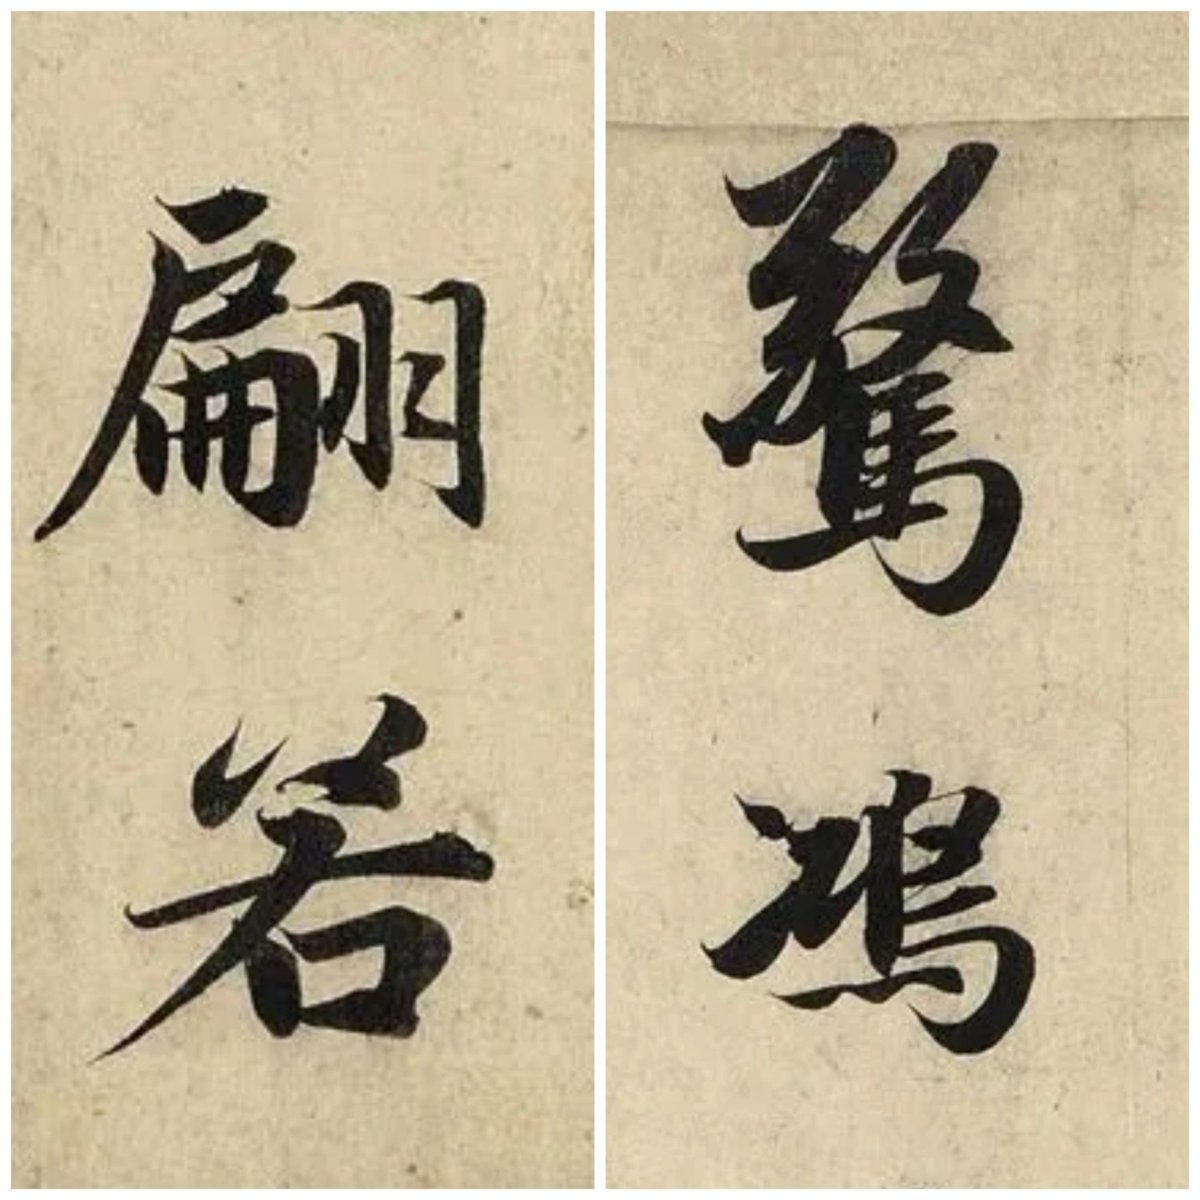 翩若
驚鴻